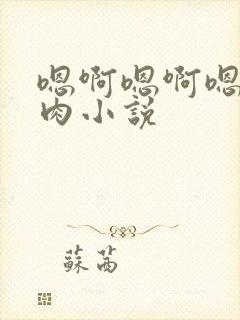 嗯啊嗯啊嗯
肉小説
蘇茜